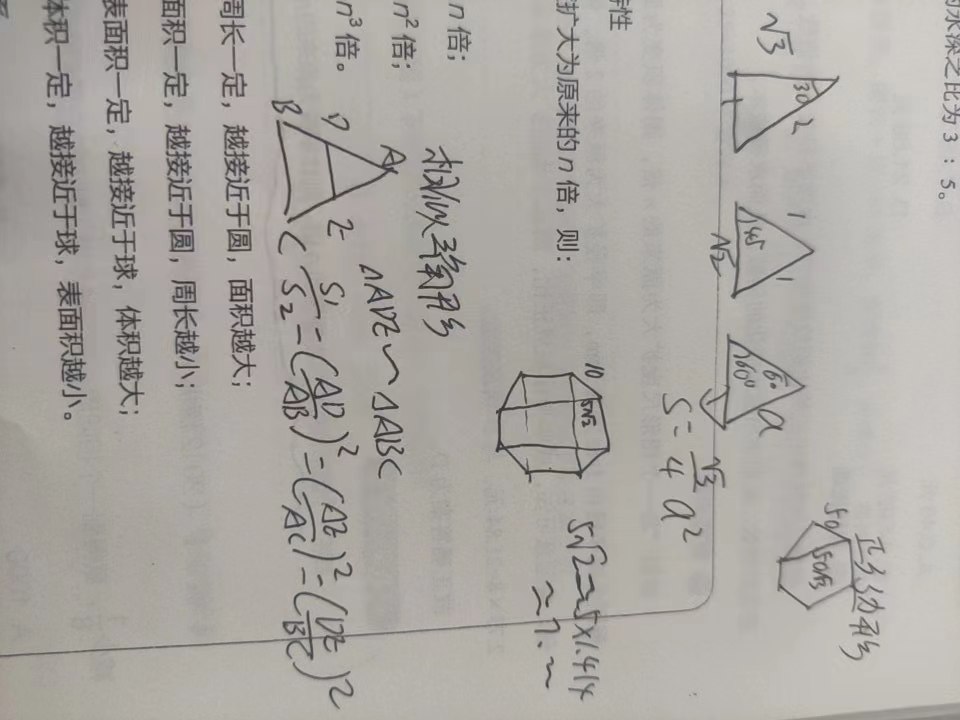 水深之比为 3 : 5。
正多边形
50 50√3
30 2
√3
1
1 1
45
√2
60 a
60°
S = √3/4 a²
特性
扩大为原来的 n 倍，则：
10 5√2
5√2≈5×1.414
≈7.~
n 倍；
n² 倍；
n³ 倍。
相似三角形
A
D E
B C
△ADE∽△ABC
S1/S2=(AD/AB)²=(AE/AC)²=(DE/BC)²
周长一定，越接近于圆，面积越大；
面积一定，越接近于圆，周长越小；
表面积一定，越接近于球，体积越大；
体积一定，越接近于球，表面积越小。